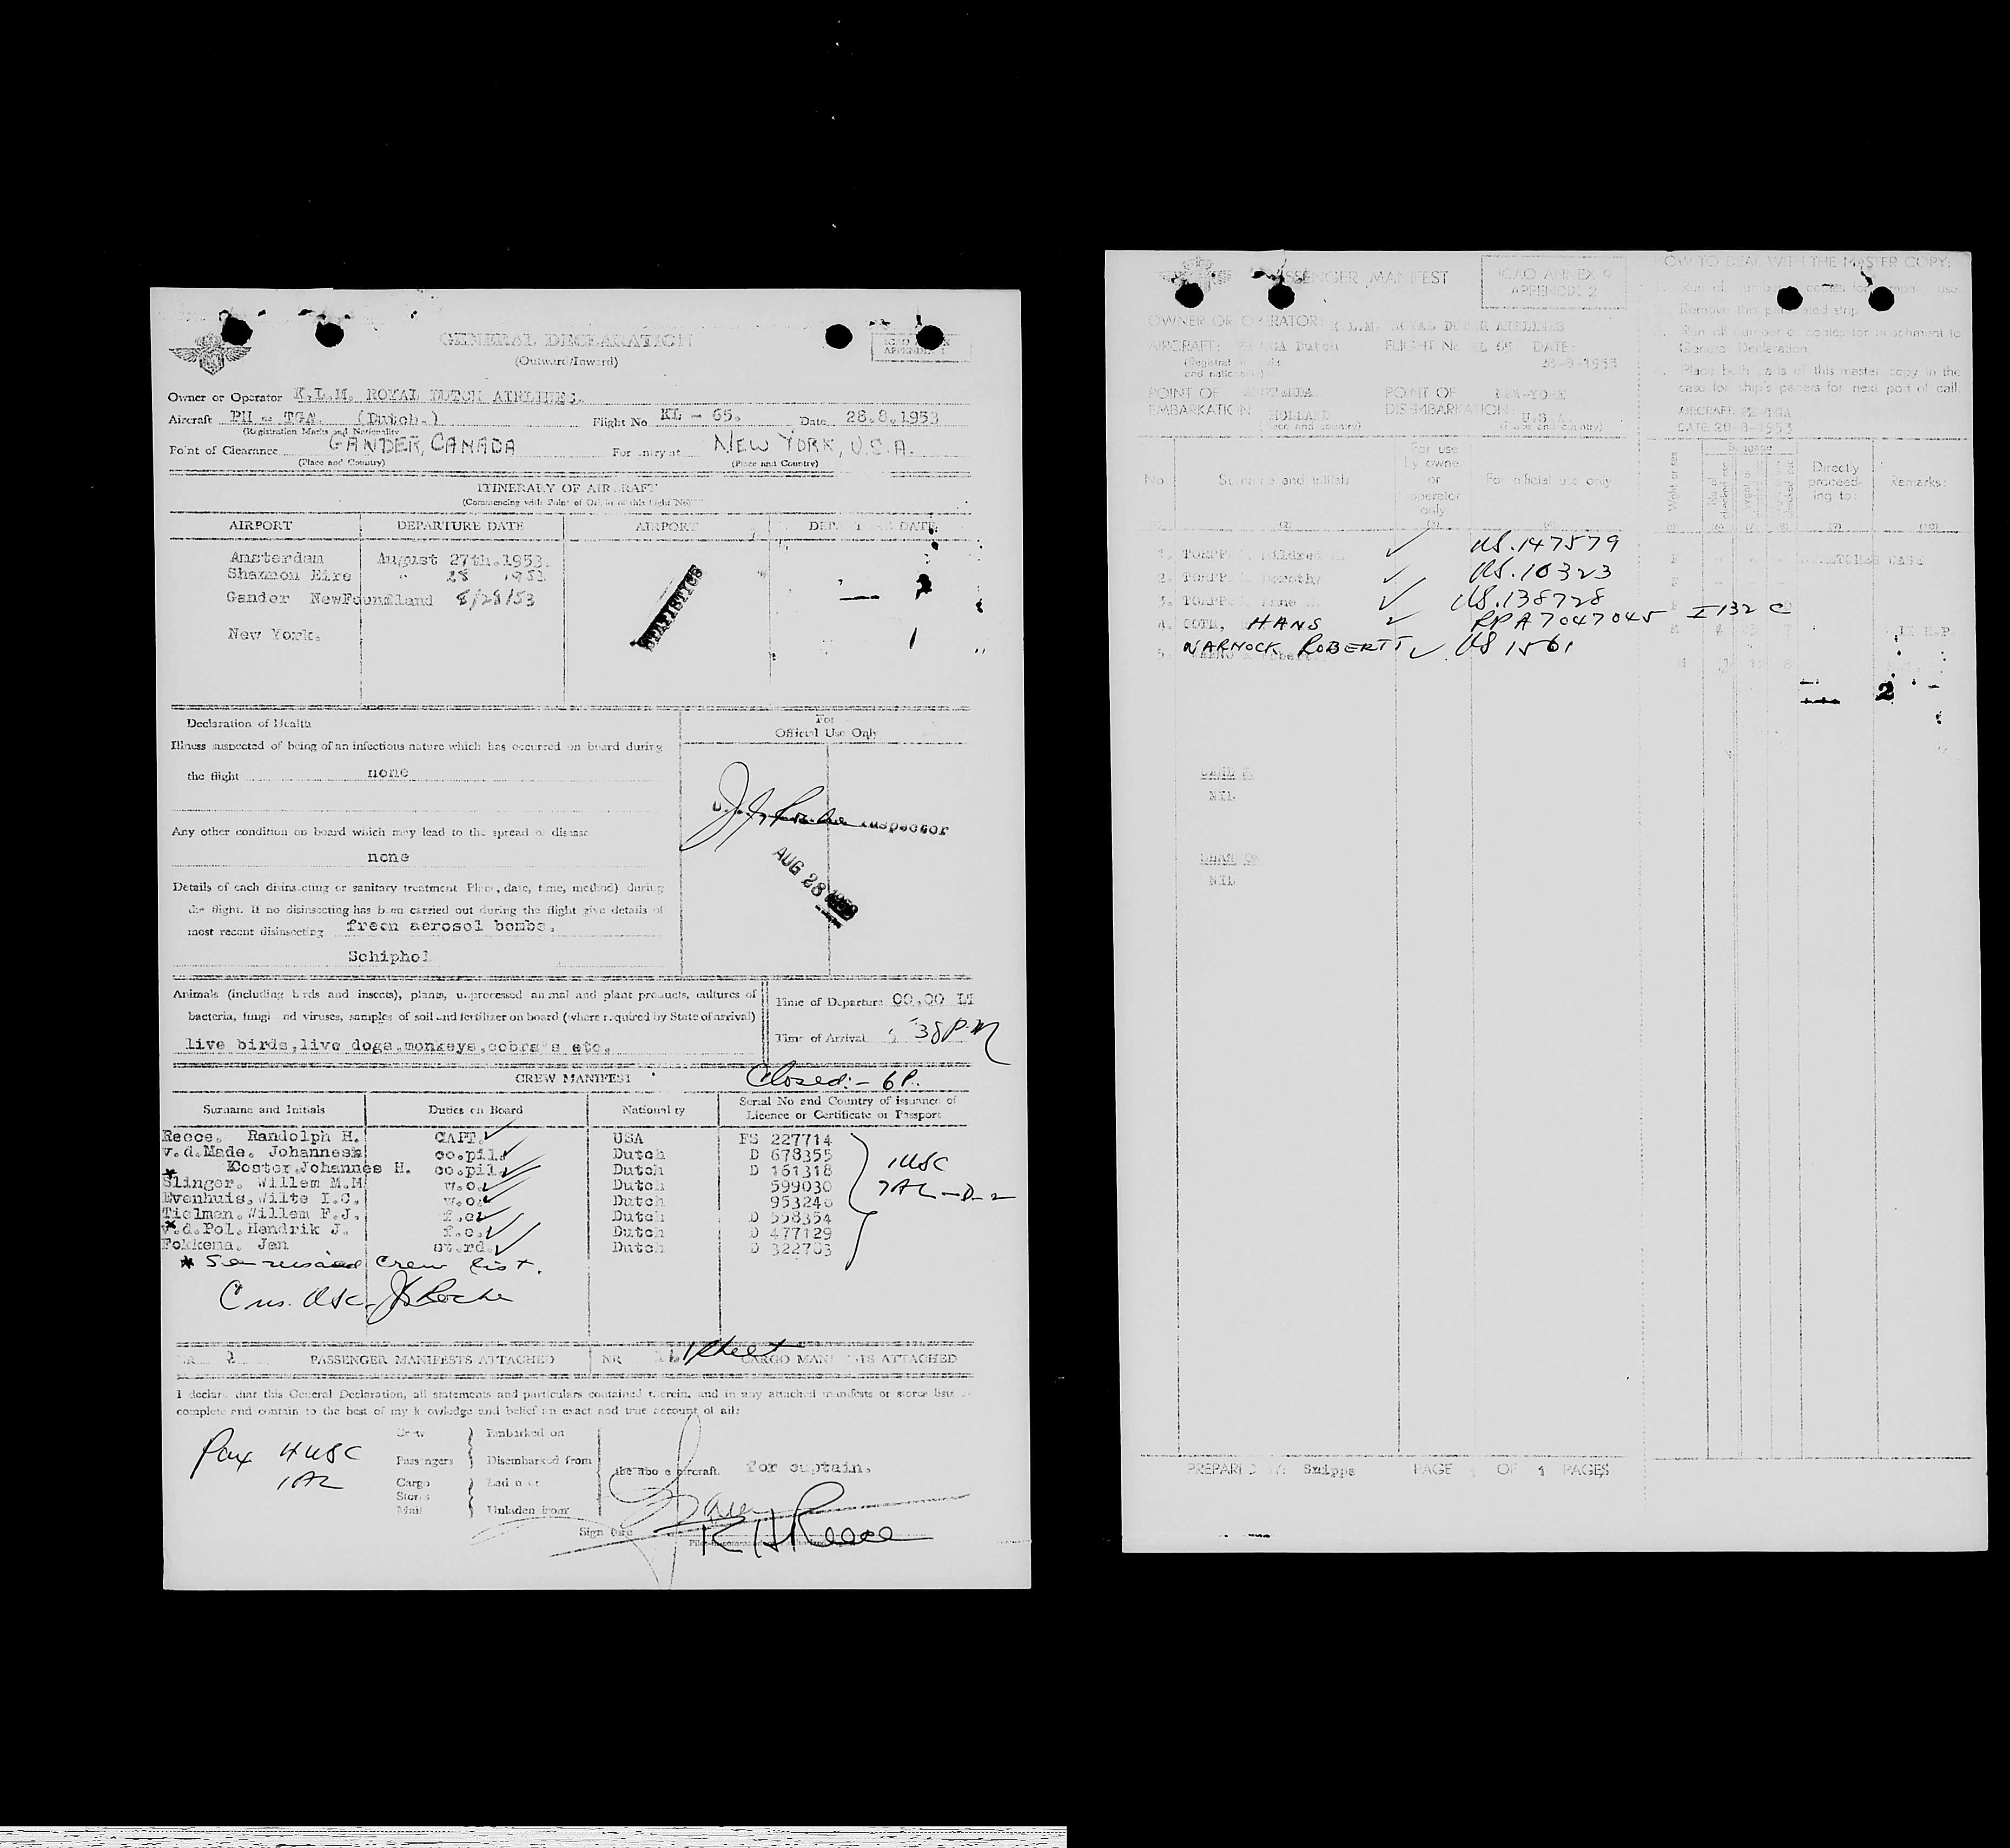 GENERAL DECLARATION
(Outward/Inward)
Owner or Operator K.L.M. ROYAL DUTCH AIRLINES.
Aircraft PH - TGA (Dutch.) Flight No KL - 65. Date 28.8.1953
(Registration Marks and Nationality)
Point of Clearance GANDER, CANADA For entry at NEW YORK, U.S.A.
(Place and Country) (Place and Country)
ITINERARY OF AIRCRAFT
(Commencing with Point of Origin of this flight No)
AIRPORT DEPARTURE DATE AIRPORT DEPARTURE DATE
Amsterdam August 27th.1953.
Shannon Eire " 28 1953
Gander NewFoundland 8/28/53
New York.
STATISTICS
Declaration of Health
For
Official Use Only
Illness suspected of being of an infectious nature which has occurred on board during
the flight none
Inspector
AUG 28 1953
Any other condition on board which may lead to the spread of disease
none
Details of each disinsecting or sanitary treatment Place, date, time, method) during
the flight. If no disinsecting has been carried out during the flight give details of
most recent disinsecting freon aerosol bombs.
Schiphol
Animals (including birds and insects), plants, unprocessed animal and plant products, cultures of
bacteria, fungi and viruses, samples of soil and fertilizer on board (where required by State of arrival)
live birds,live dogs.monkeys,cobra's etc.
Time of Departure 00.00 LT
Time of Arrival 38 P.M
CREW MANIFEST Closed:- 6 P.
Surname and Initials Duties on Board Nationality Serial No and Country of issuance of
Licence or Certificate or Passport
Reece. Randolph H. CAPT. USA FS 227714
v.d.Made. Johannes co.pil. Dutch D 678355
* Koster.Johannes H. co.pil. Dutch D 161318
Slinger. Willem M.M w.o. Dutch 599030
Evenhuis,Wilte I.C. w.o. Dutch 953240
Tielman.Willem F.J. f.e. Dutch D 558354
* v.d.Pol.Hendrik J. f.e. Dutch D 477129
Fokkema. Jan st.rd. Dutch D 322703
1 USC
7 AL - D-2
* See revised crew list.
J Roche
NR 1 PASSENGER MANIFESTS ATTACHED NR 1 sheet CARGO MANIFESTS ATTACHED
I declare that this General Declaration, all statements and particulars contained therein, and in any attached manifests or stores lists
complete and contain to the best of my knowledge and belief an exact and true account of all:
Pax 4 USC
1 AL
Crew Embarked on
Passengers Disembarked from
Cargo Laden on
Stores
Mail Unladen from
the above aircraft. for captain.
Signature
R H Reece
PASSENGER MANIFEST
ICAO ANNEX 9
APPENDIX 2
OWNER OR OPERATOR: K.L.M. ROYAL DUTCH AIRLINES
AIRCRAFT: Dutch FLIGHT No KL 65 DATE:
28-8-1953
POINT OF EMBARKATION AMSTERDAM HOLLAND
POINT OF DISEMBARKATION: NEW-YORK U.S.A.
(Place and country) (Place and country)
HOW TO DEAL WITH THE MASTER COPY:
Run off number of copies for company use
Remove this perforated strip.
Run off number of copies for attachment to
General Declaration
Place both parts of this master copy in the
case for ship's papers for next port of call.
AIRCRAFT: PH-TGA
DATE 28-8-1953
No Surname and initials For use by owner or operator only For official use only Baggage Directly proceeding to: Remarks:
1. Mildred US.147579
2. Dorothy US.10323
3. US.138728
4. HANS RPA7047045 I 132 C
5. WARNOCK ROBERT T US 1561
2
NIL
NIL
PREPARED BY: Snipps PAGE OF 1 PAGES